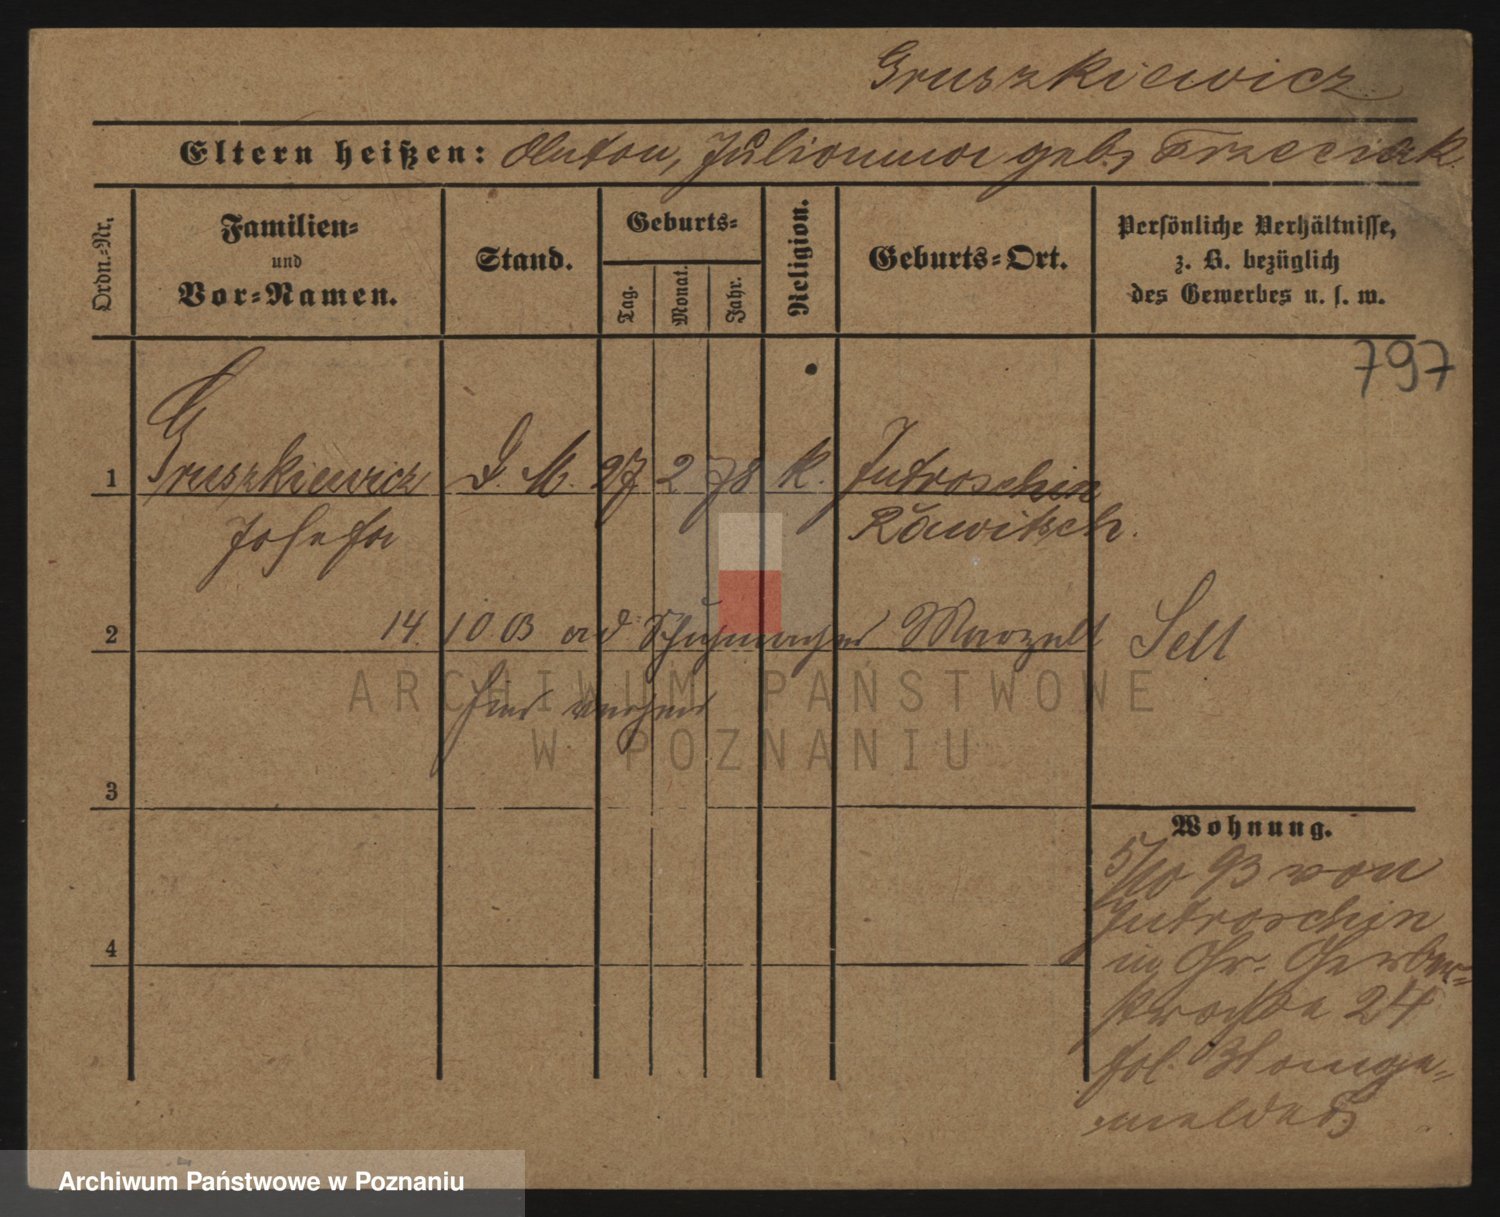 Gruszkiewicz
Eltern heißen: Anton, Julianna geb. Trzeciak
Ordn.-Nr.
Familien-
und
Vor-Namen.
Stand.
Geburts-
Tag.
Monat.
Jahr.
Religion.
Geburts-Ort.
Persönliche Verhältnisse,
z. B. bezüglich
des Gewerbes u. s. w.
797
1 Gruszkiewicz D. M. 27 2 78 k. Jutroschin
Josefa Rawitsch.
2 14. 10 03 Schuhmacher
hier
ARCHIWUM PAŃSTWOWE
W POZNANIU
3
Wohnung.
5/10 93 von
Jutroschin
in Gr. Gerber-
straße 24
4
Archiwum Państwowe w Poznaniu